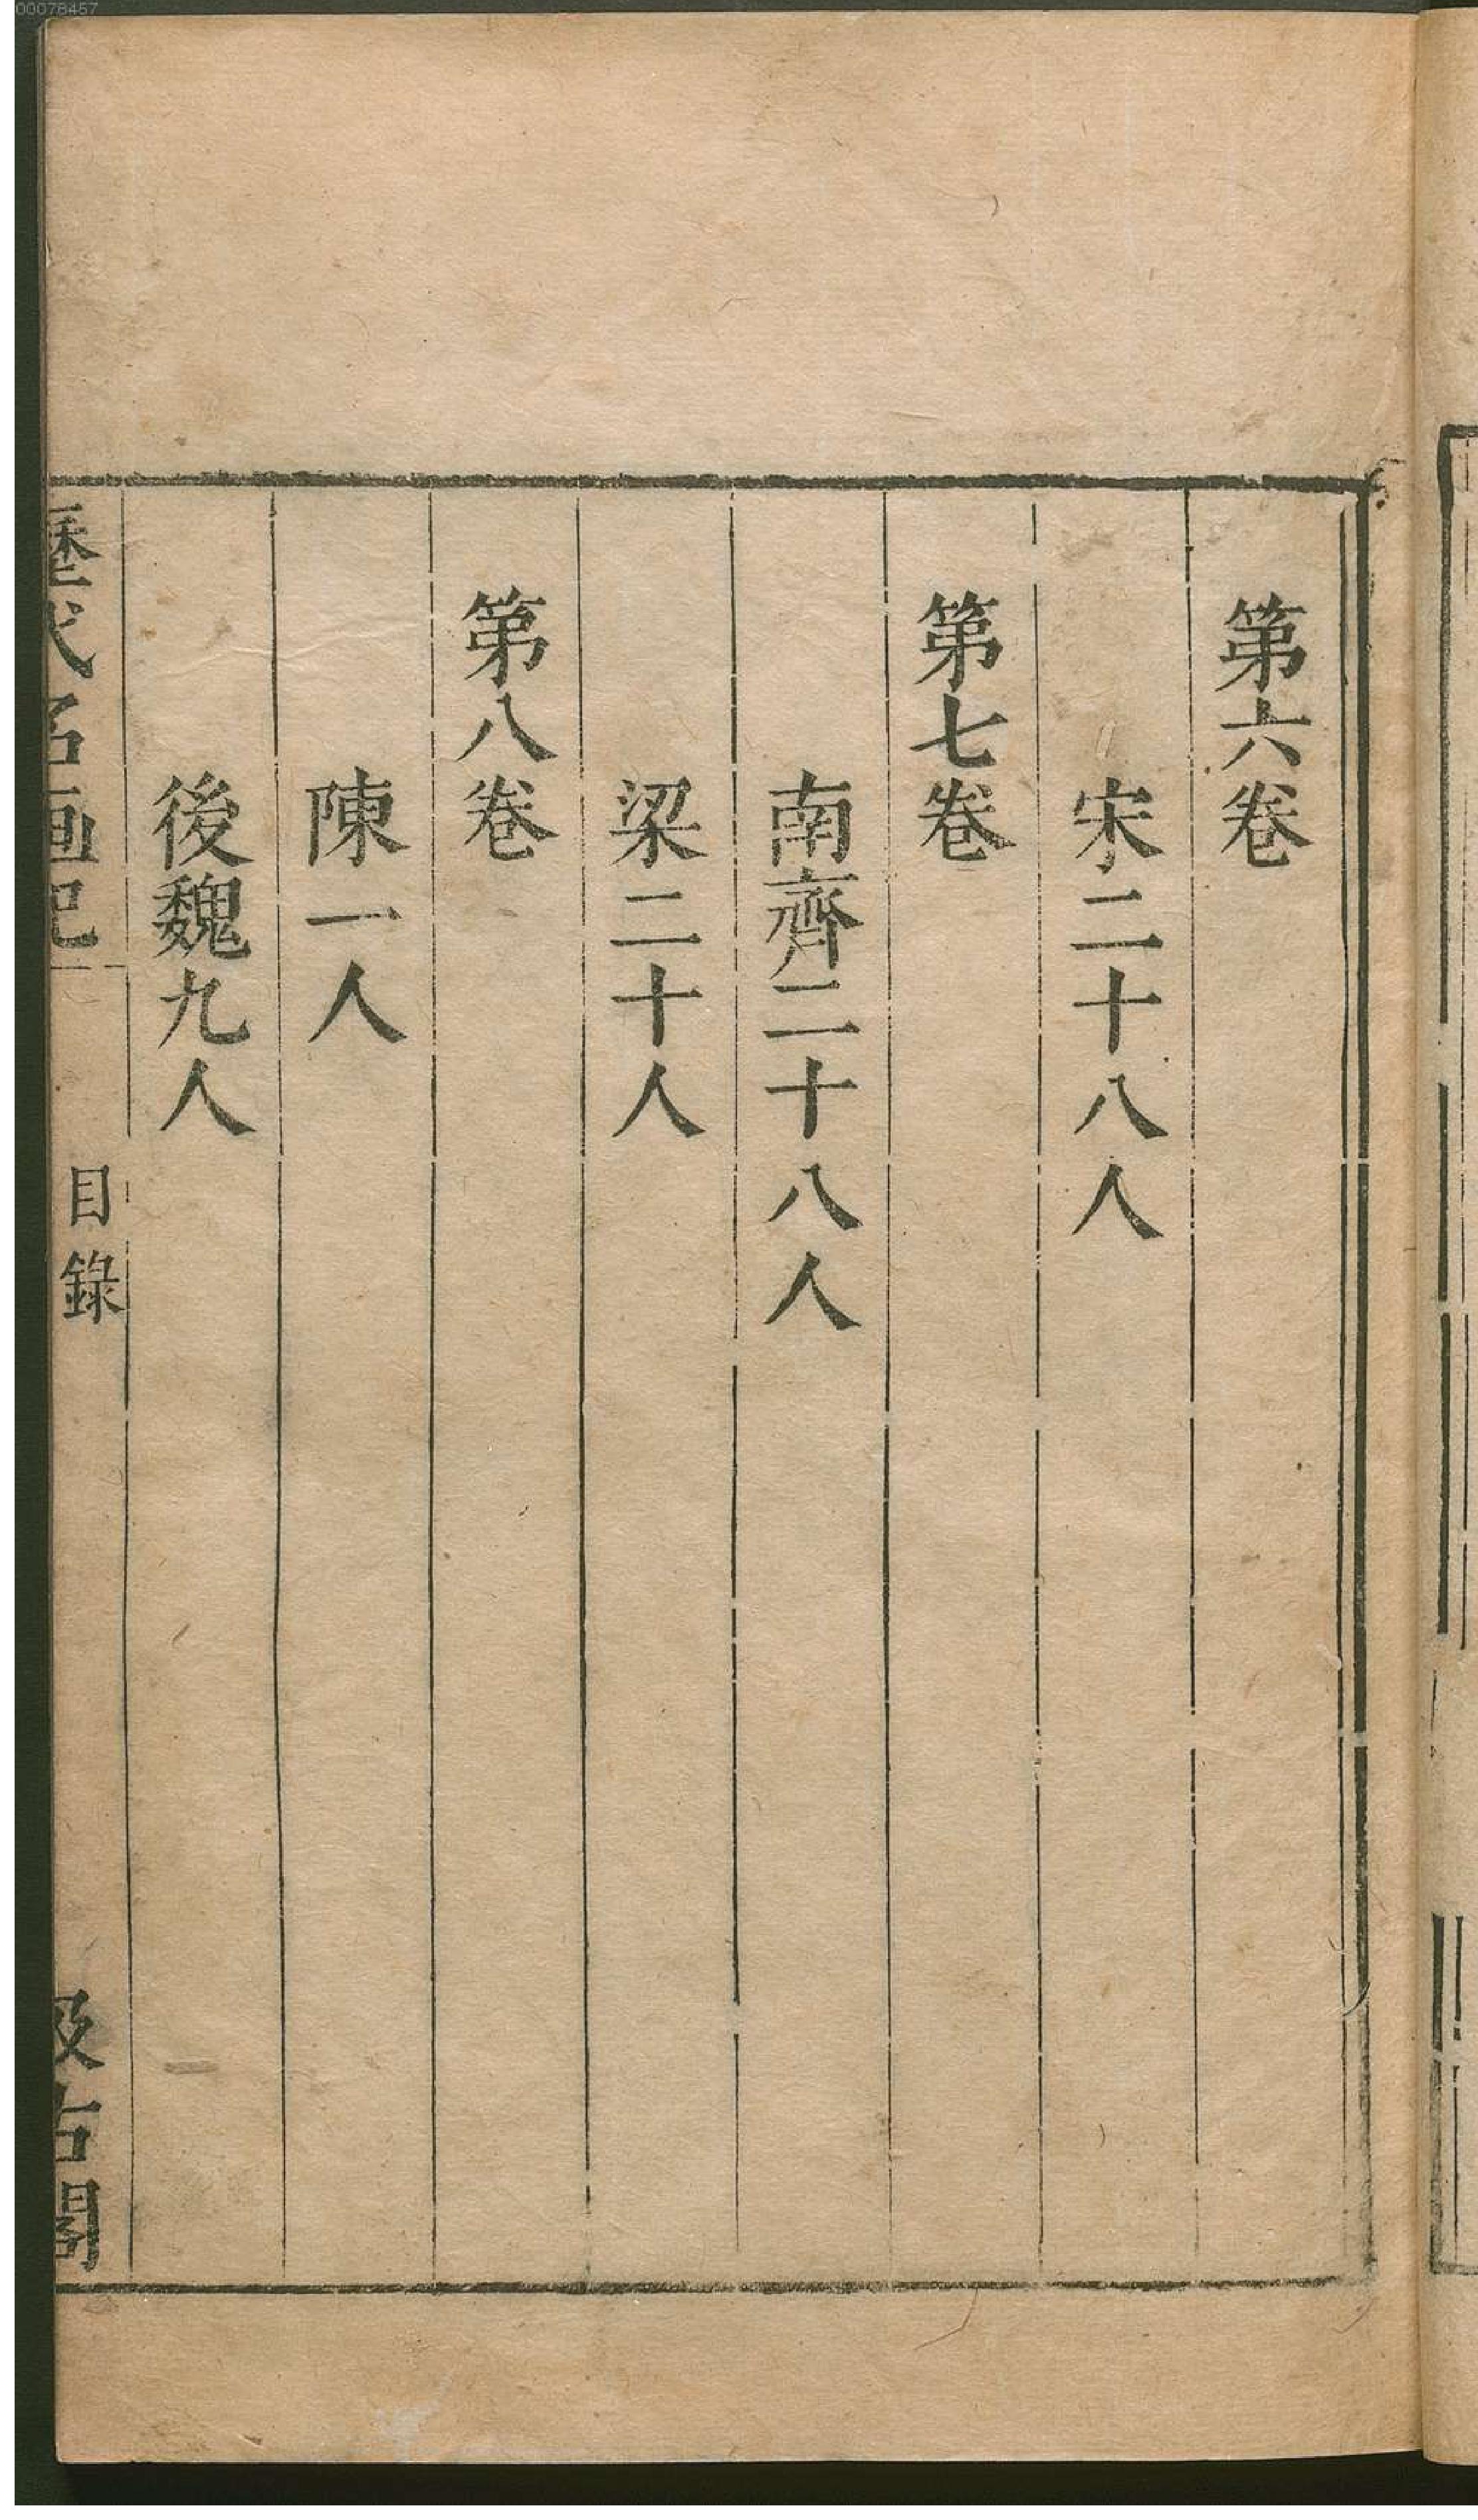 00078457
第六卷
宋二十八人
第七卷
南齊二十八人
梁二十人
第八卷
陳一人
後魏九人
歷代名画記
目錄
汲古閣